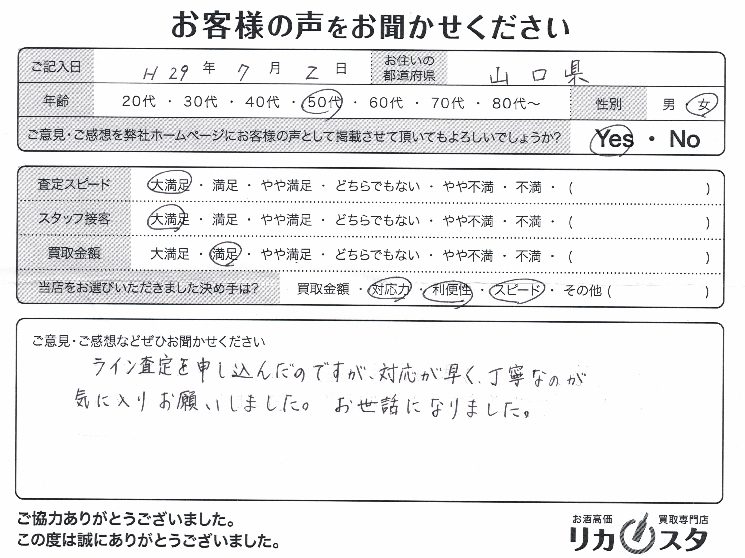 お客様の声をお聞かせください
ご記入日 H 29 年 7 月 2 日 お住いの都道府県 山口県
年齢 20代・30代・40代・50代・60代・70代・80代〜 性別 男・女
ご意見・ご感想を弊社ホームページにお客様の声として掲載させて頂いてもよろしいでしょうか? Yes・No
査定スピード 大満足・満足・やや満足・どちらでもない・やや不満・不満・( )
スタッフ接客 大満足・満足・やや満足・どちらでもない・やや不満・不満・( )
買取金額 大満足・満足・やや満足・どちらでもない・やや不満・不満・( )
当店をお選びいただきました決め手は? 買取金額・対応力・利便性・スピード・その他( )
ご意見・ご感想などぜひお聞かせください
ライン査定を申し込んだのですが、対応が早く、丁寧なのが
気に入りお願いしました。 お世話になりました。
ご協力ありがとうございました。
この度は誠にありがとうございました。
お酒高価 買取専門店
リカスタ